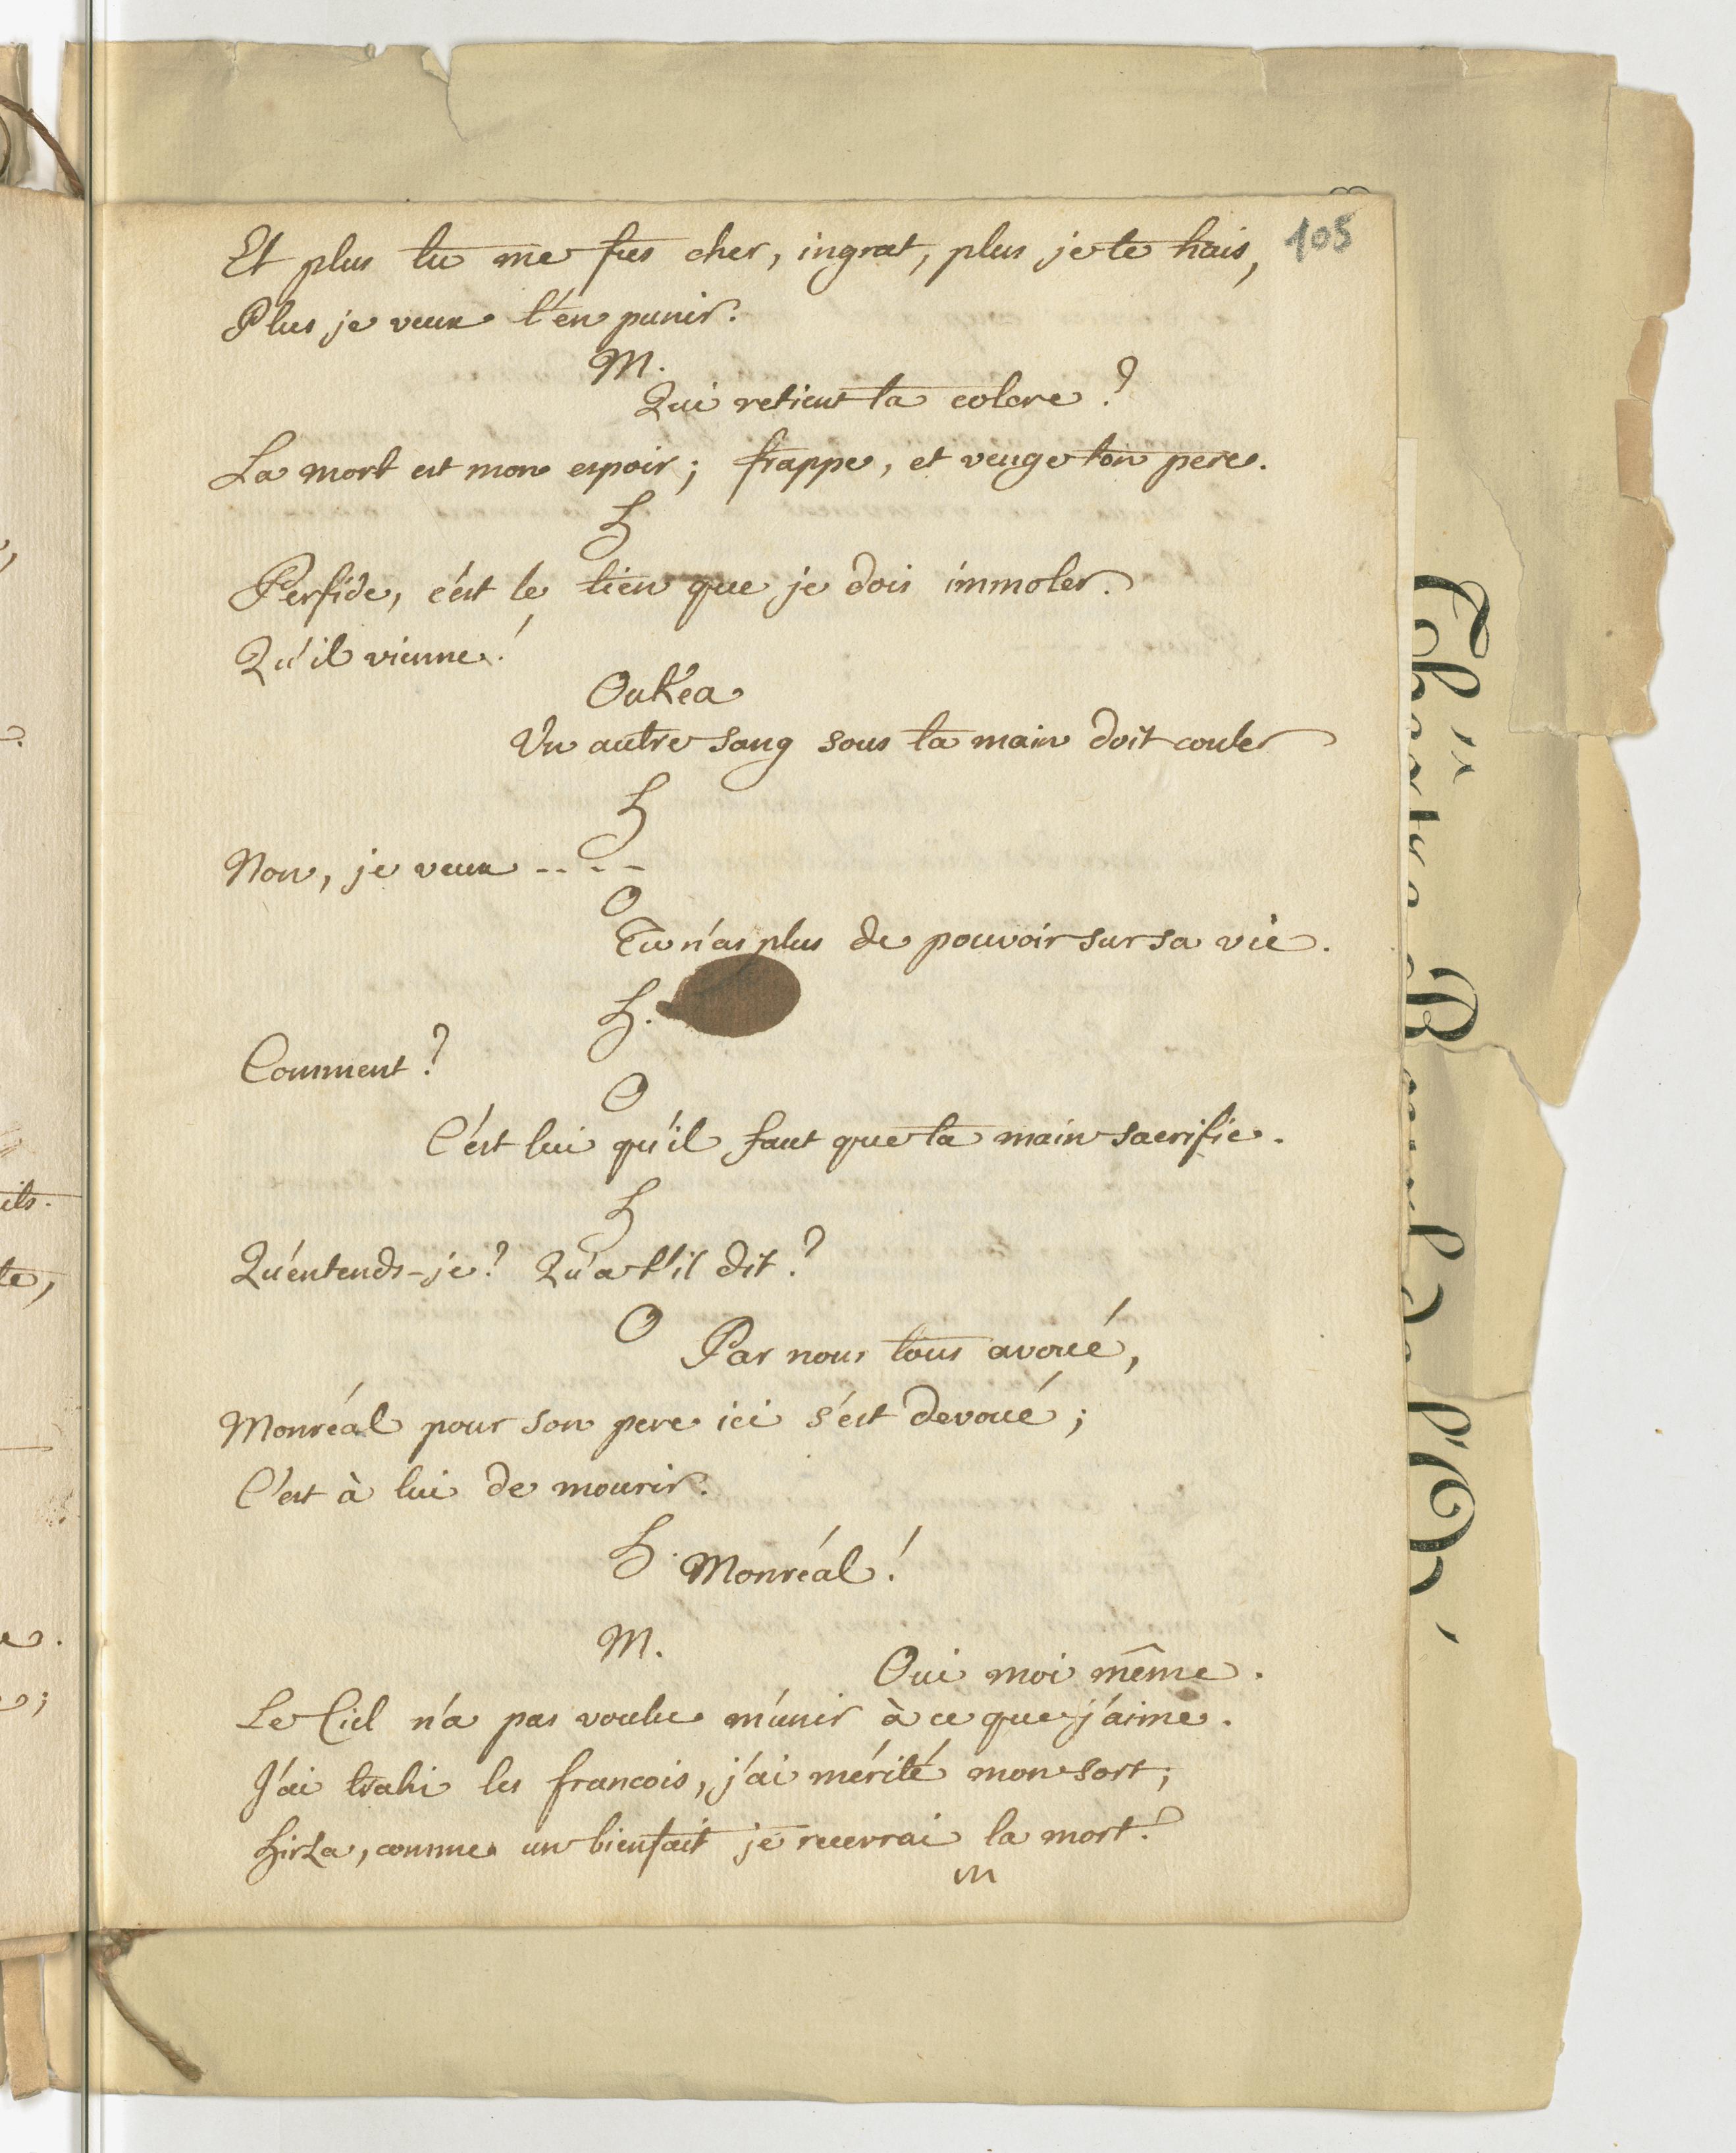 105
Et plus tu me fus cher, ingrat, plus je te hais,
Plus je veux t'en punir.
M.
Qui retient ta colere ?
La mort est mon espoir ; frappe, et venge ton pere.
H
Perfide, c'est le tien que je dois immoler.
Qu'il vienne !
Oukéa
Un autre sang sous ta main doit couler
H
Non, je veux - - - -
O
Tu n'as plus de pouvoir sur sa vie.
H.
Comment ?
O
C'est lui qu'il faut que ta main sacrifie.
H
Qu'entends-je ? Qu'a t'il dit ?
O
Par nous tous avoué,
Monréal pour son pere ici s'est devoué ;
C'est à lui de mourir.
H. Monréal !
M.
Oui moi même.
Le Ciel n'a pas voulu m'unir à ce que j'aime.
J'ai trahi les francois, j'ai mérité mon sort ;
Hirza, comme un bienfait je recevrai la mort.
m
ils.
te,